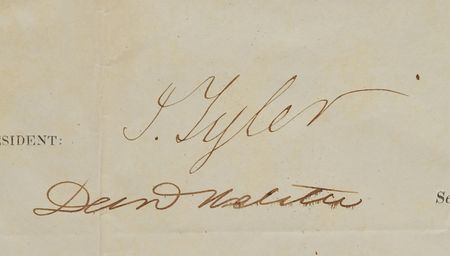 J. Tyler
ESIDENT:
Danl Webster
Se